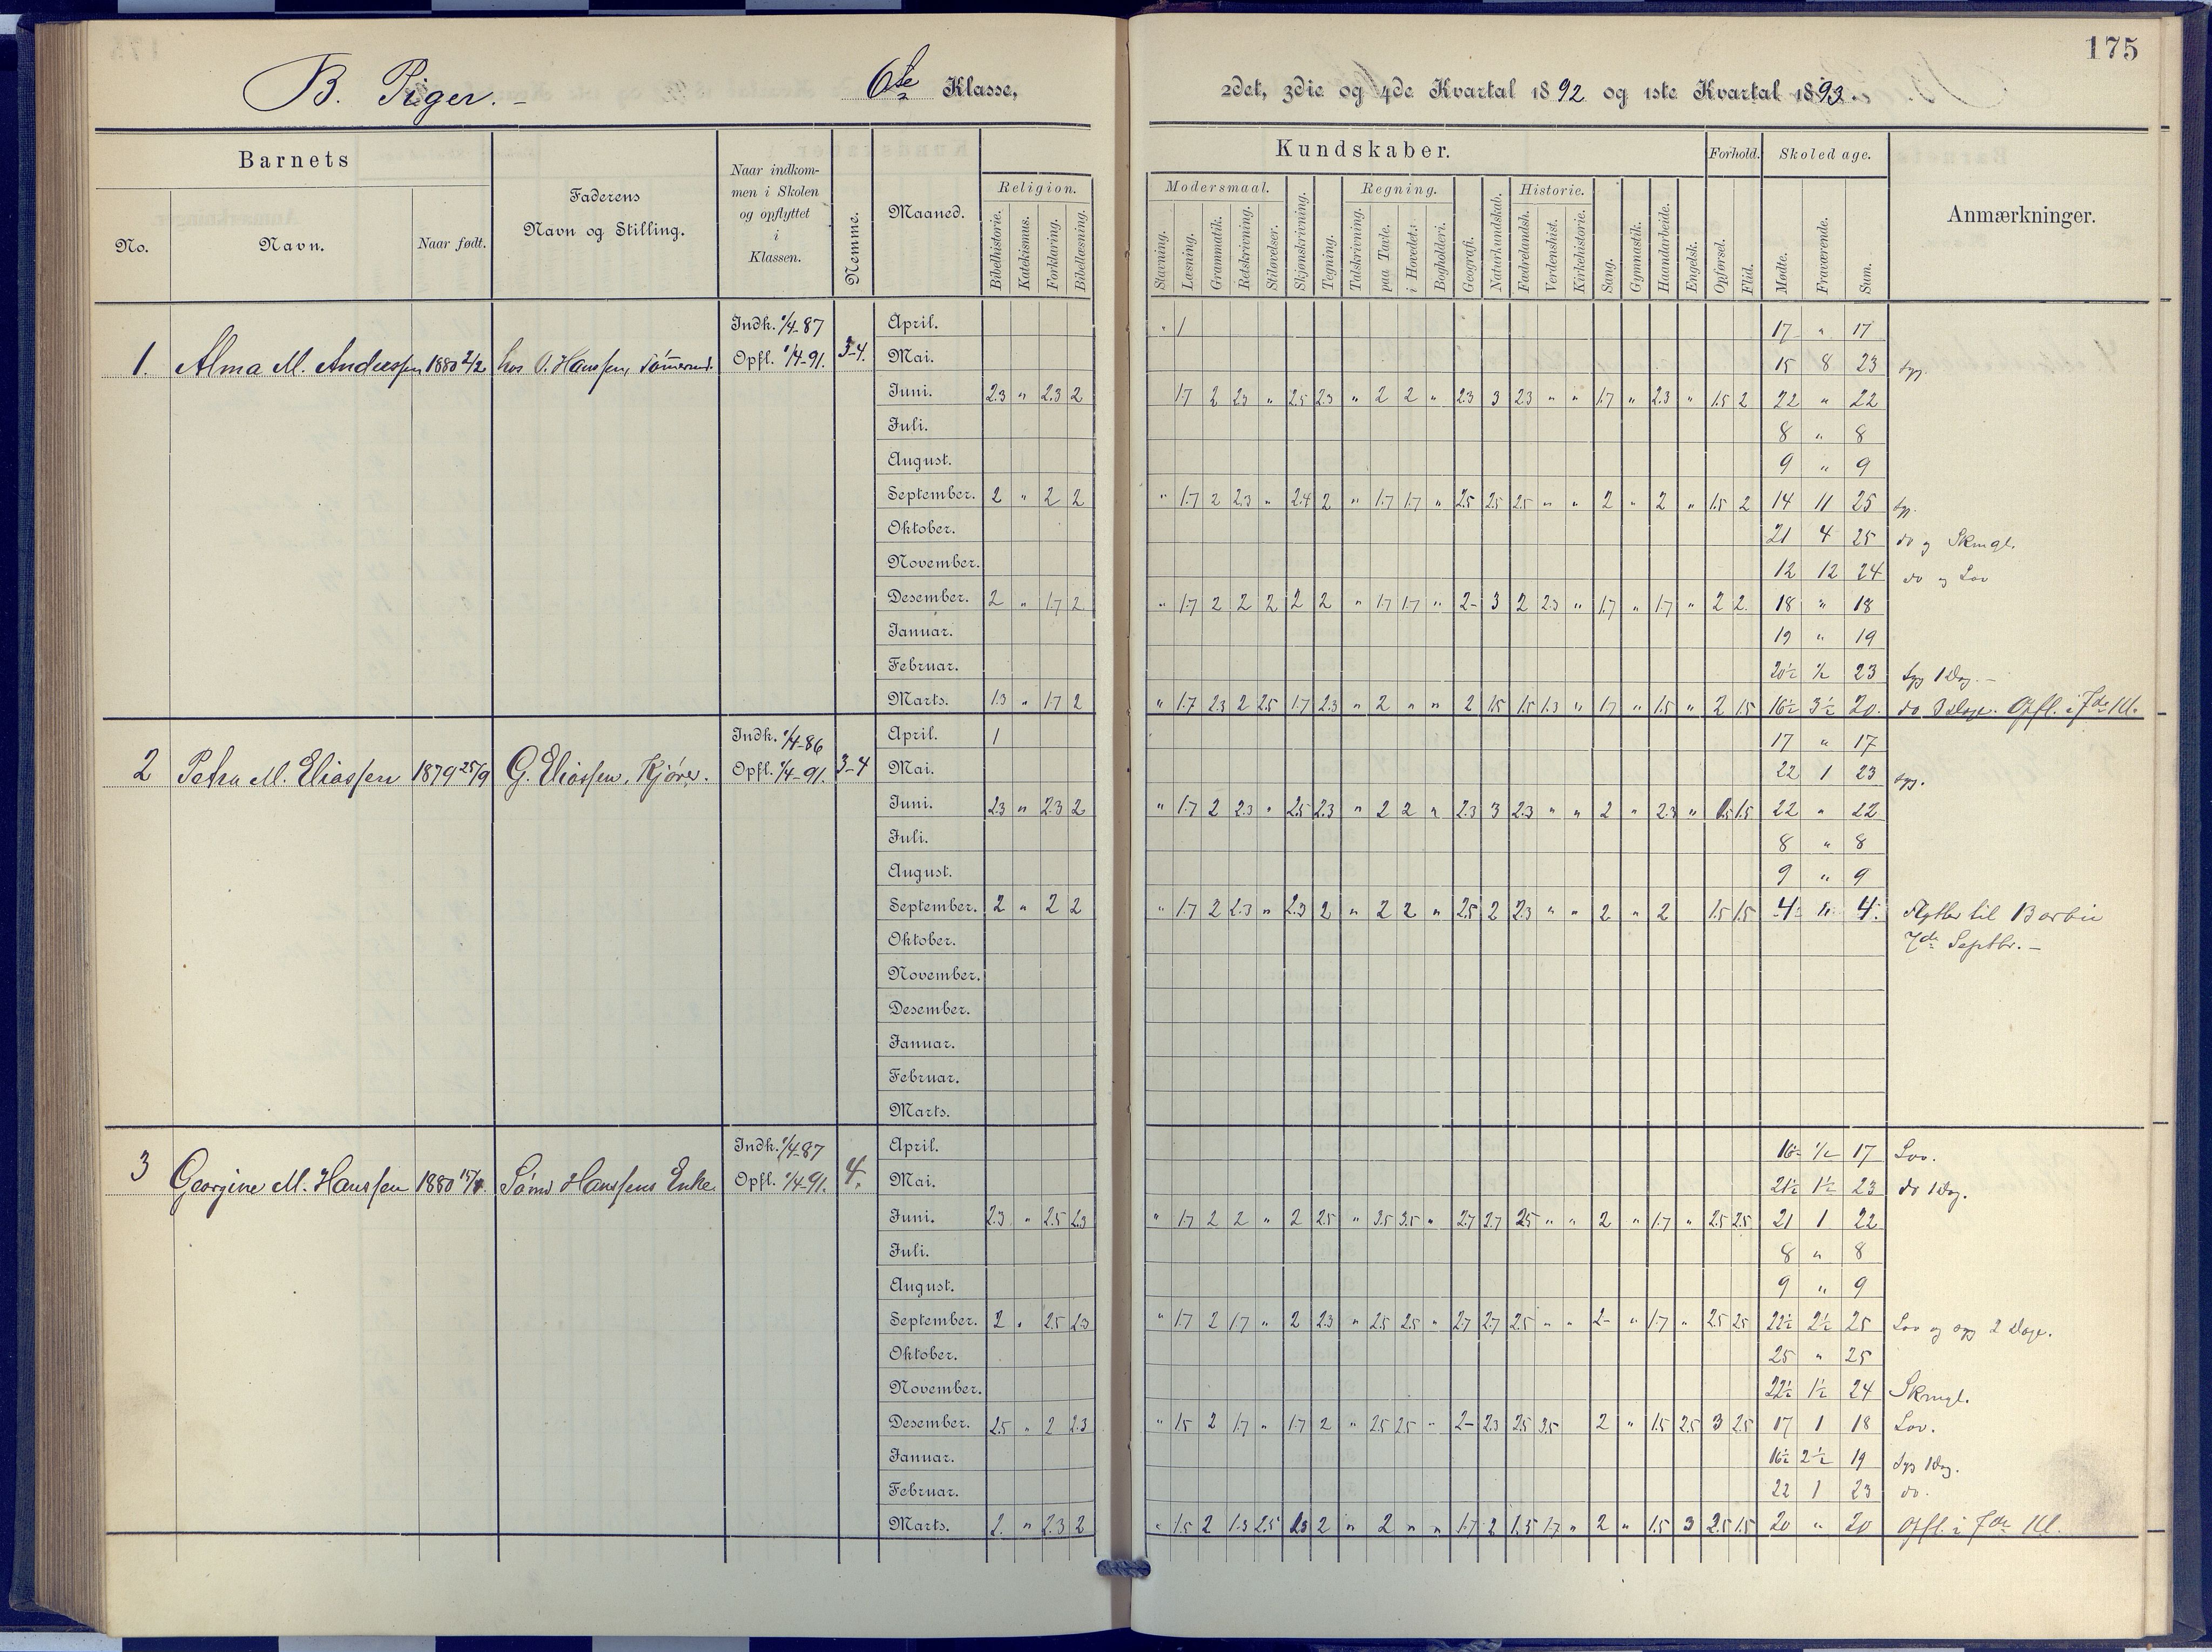 175
B. Piger. – 6te Klasse, 2det, 3die og 4de Kvartal 1892 og 1ste Kvartal 1893.
Barnets
No. Navn. Naar født.
Faderens Navn og Stilling.
Naar indkommen i Skolen og opflyttet i Klassen.
Nemme. Maaned.
Kundskaber. Forhold. Skoledage. Anmærkninger.
Religion. Modersmaal. Regning. Historie.
Bibelhistorie. Katekismus. Forklaring. Bibellæsning.
Stavning. Læsning. Grammatik. Retskrivning. Stiløvelser. Skjønskrivning. Tegning. Talskrivning. paa Tavle. i Hovedet. Bogholderi. Geografi. Naturkundskab. Fædrelandsh. Verdenshist. Kirkehistorie. Sang. Gymnastik. Haandarbeide. Engelsk. Opførsel. Flid. Mødte. Fraværende. Sum.
1. Alma M. Anderssen 1880 2/2 hos O. Hanssen, Tømmerm. Indk. 1/4-87 Opfl. 1/4-91. 3-4.
April. " 1 17 " 17
Mai. 15 8 23 syg.
Juni. 2.3 " 2.3 2 1.7 2 2.3 " 2.5 2.3 " 2 2 " 2.3 3 2.3 " " 1.7 " 2.3 " 1.5 2 22 " 22
Juli. 8 " 8
August. 9 " 9
September. 2 " 2 2 " 1.7 2 2.3 " 2.4 2 " 1.7 1.7 " 2.5 2.5 2.5 " " 2 " 2 " 1.5 2 14 11 25 syg.
Oktober. 21 4 25 do og Skmgl.
November. 12 12 24 do og Lov
Desember. 2 " 1.7 2 " 1.7 2 2 2 2 2 " 1.7 1.7 " 2- 3 2 2.3 " 1.7 " 1.7 " 2 2. 18 " 18
Januar. 19 " 19
Februar. 20½ ½ 23 syg 1 Dag. –
Marts. 1.3 " 1.7 2 " 1.7 2.3 2 2.5 1.7 2.3 " 2 " " 2 1.5 1.5 1.3 " 1.7 " 1.5 " 2 1.5 16½ 3½ 20. do 3 Dage. Opfl. i 7de Kl.
2 Petra M. Eliassen 1879 25/9 G. Eliassen, Kjører. Indk. 1/4-86 Opfl. 1/4-91. 3-4
April. 1 17 " 17
Mai. 22 1 23 syg.
Juni. 2.3 " 2.3 2 " 1.7 2 2.3 " 2.5 2.3 " 2 2 " 2.3 3 2.3 " " 2 " 2.3 " 1.5 1.5 22 " 22
Juli. 8 " 8
August. 9 " 9
September. 2 " 2 2 " 1.7 2 2.3 " 2.3 2 " 2 2 " 2.5 2 2.3 " " 2 " 2 1.5 1.5 4 " 4. Flytter til Barbu
Oktober. 7de Septbr. –
November.
Desember.
Januar.
Februar.
Marts.
3 Georgine M. Hanssen 1880 Hanssens Enke. Indk. 1/4-87 Opfl. 1/4-91. 4.
April. 16½ ½ 17 Lov.
Mai. 21½ 1½ 23 do 1 Dag.
Juni. 2.3 " 2.5 2.3 " 1.7 2 2 " 2 2.5 " 3.5 3.5 " 2.7 2.7 2.5 " " 2 " 1.7 " 2.5 2.5 21 1 22
Juli. 8 " 8
August. 9 " 9
September. 2 " 2.5 2.3 " 1.7 2 1.7 " 2 2.3 " 2.5 2.5 " 2.7 2.7 2.5 " " 2- " 1.7 " 2.5 2.5 22½ 2½ 25 Lov og syg 2 Dage.
Oktober. 25 " 25
November. 22½ 1½ 24 Skmgl.
Desember. 2.5 " 2 2.3 " 1.5 2 1.7 " 1.7 2 " 2.5 2.5 " 2- 2.3 2.5 3.5 2 " 1.5 2.5 3 2.5 17 1 18 Lov.
Januar. 16½ 2½ 19 syg 1 Dag.
Februar. 22 1 23 do.
Marts. 2. " 2.3 2 " 1.5 2 1.3 2.5 2.3 2 " 2 " " 1.7 2 1.5 1.7 " 2 " 1.5 3 2.5 1.5 20 " 20 Opfl. i 7de Kl.